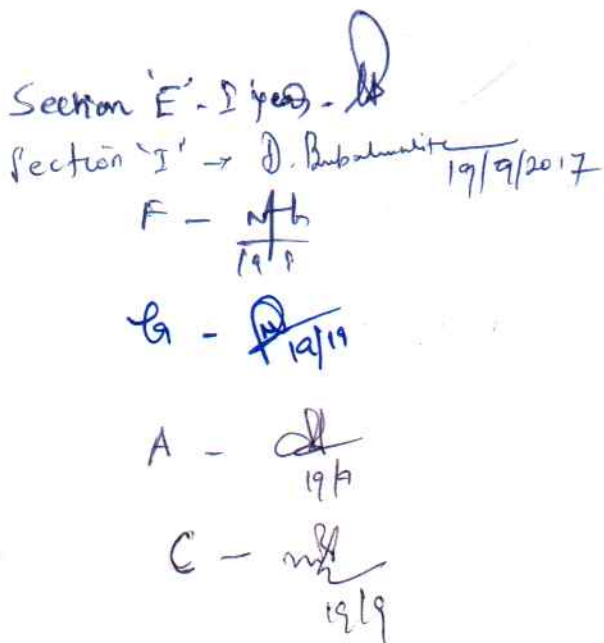 Section 'E' - I year -
Section 'I' → D.
19/9/2017
F -
19 9
G -
19/19
A -
19/9
C -
19/9